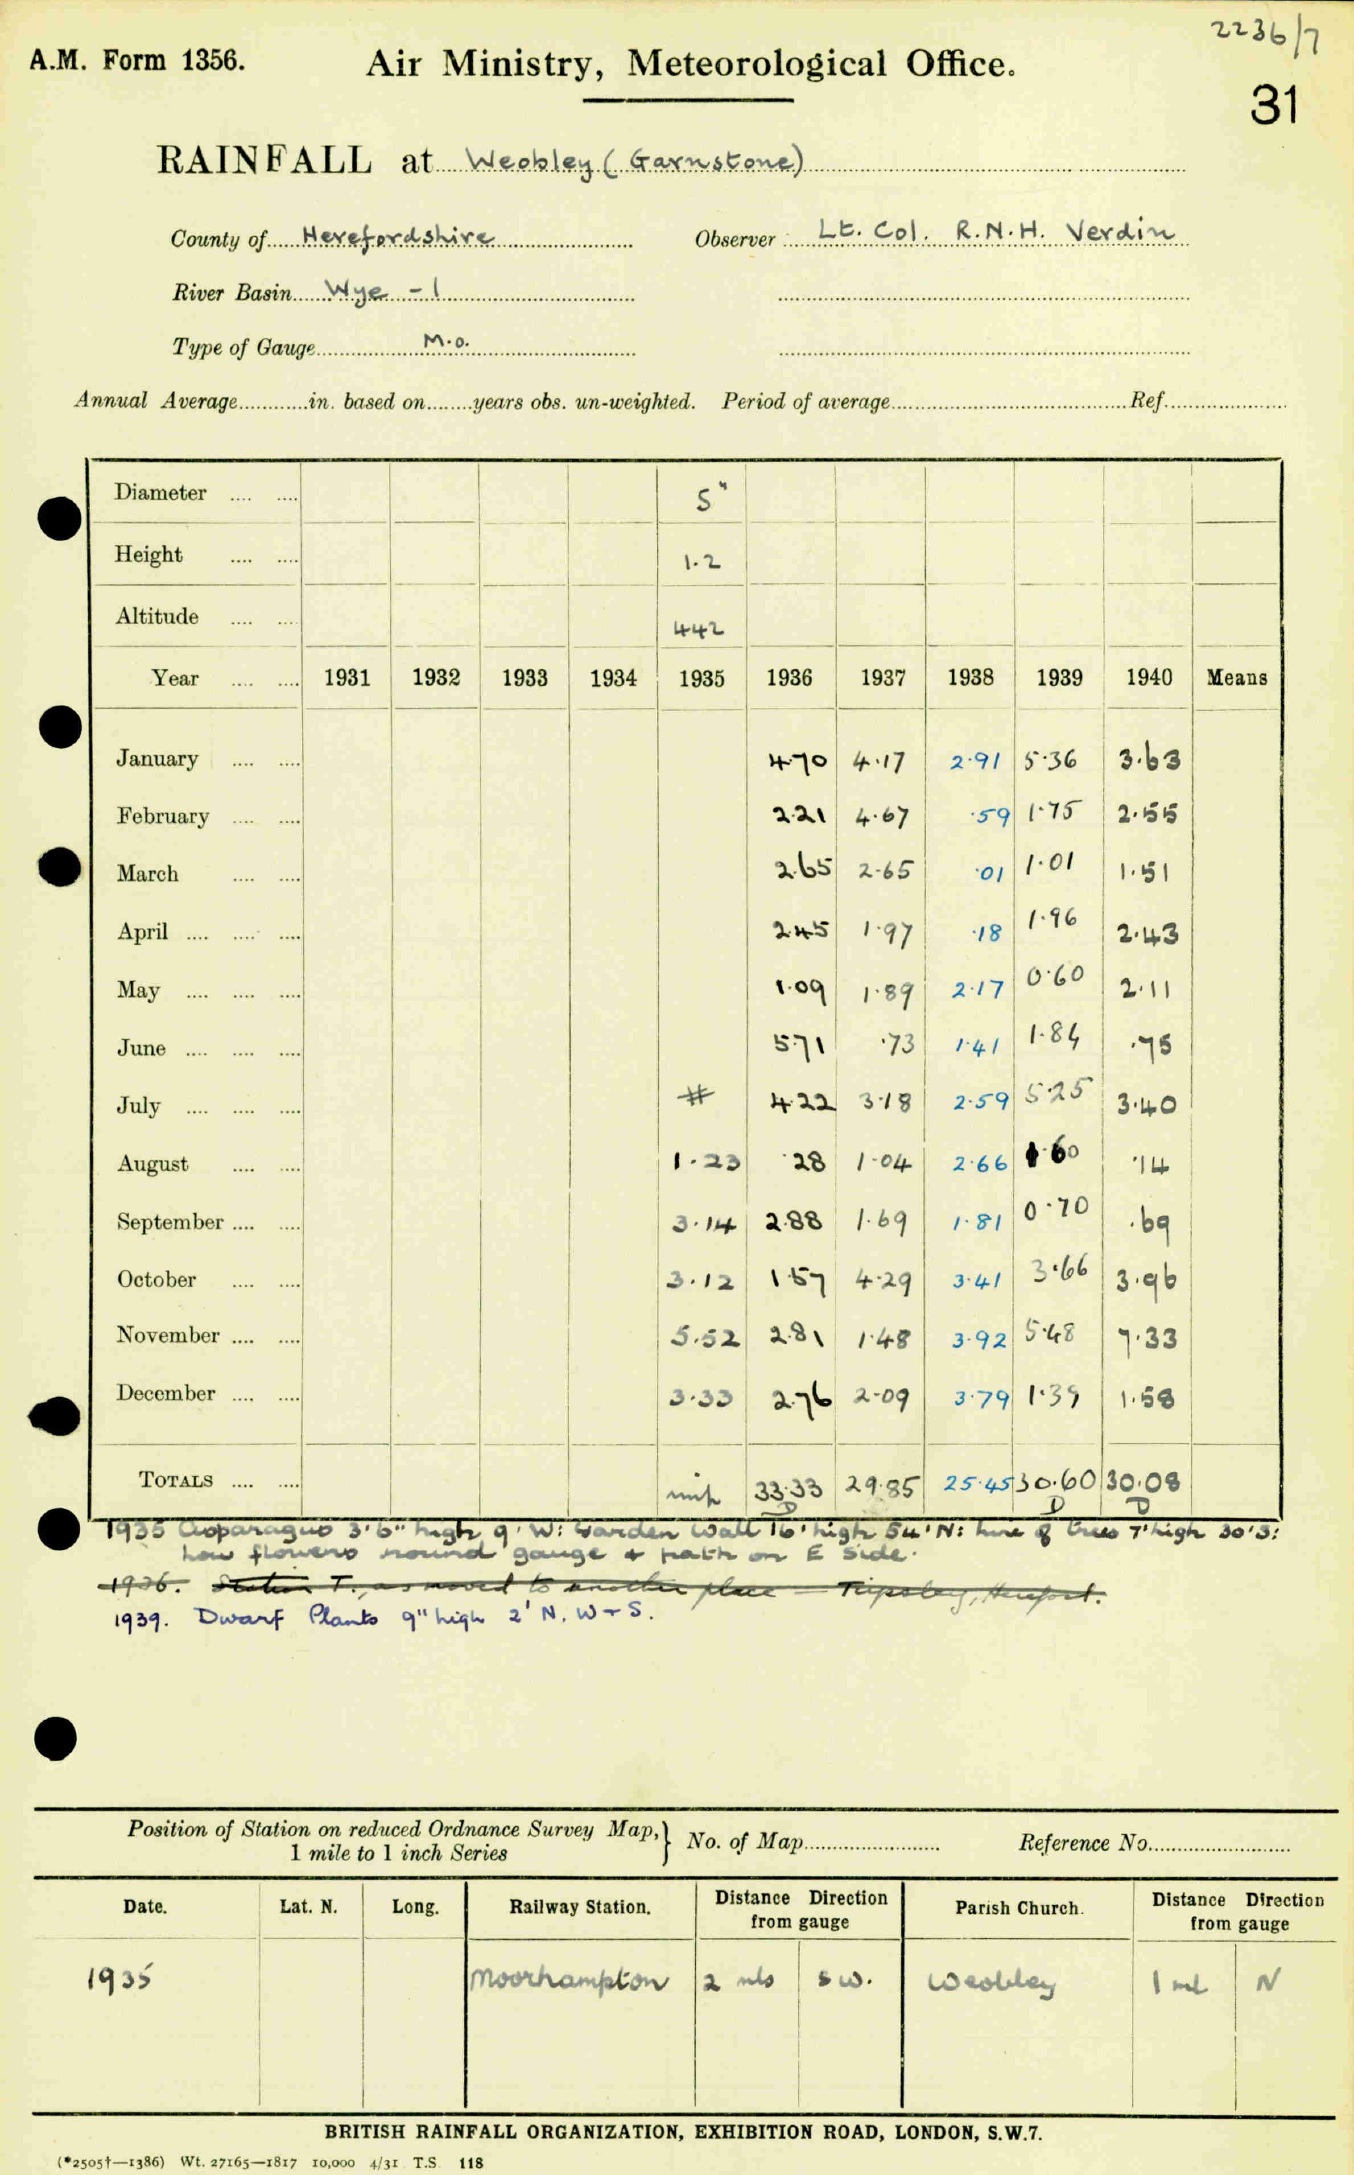 2236/7
A.M. Form 1356. Air Ministry, Meteorological Office.
31
RAINFALL at Weobley (Garnstone)
County of Herefordshire Observer Lt. Col. R.N.H. Verdin
River Basin Wye - 1
Type of Gauge M.O.
Annual Average in. based on years obs. un-weighted. Period of average Ref.
Diameter 5"
Height 1.2
Altitude 442
Year 1931 1932 1933 1934 1935 1936 1937 1938 1939 1940 Means
January 4.70 4.17 2.91 5.36 3.63
February 2.21 4.67 .59 1.75 2.55
March 2.65 2.65 .01 1.01 1.51
April 2.45 1.97 .18 1.96 2.43
May 1.09 1.89 2.17 0.60 2.11
June 5.71 .73 1.41 1.84 .75
July # 4.22 3.18 2.59 5.25 3.40
August 1.23 .28 1.04 2.66 1.60 .14
September 3.14 2.88 1.69 1.81 0.70 .69
October 3.12 1.57 4.29 3.41 3.66 3.96
November 5.52 2.81 1.48 3.92 5.48 7.33
December 3.33 2.76 2.09 3.79 1.39 1.58
TOTALS 33.33 29.85 25.45 30.60 30.08
D D D
1935 Asparagus 3'6" high 9' W: Garden Wall 16' high 54' N: line of trees 7' high 30' S:
low flowers round gauge + path on E side.
1936. Station T. moved to another place - Hereford.
1939. Dwarf Plants 9" high 2' N. W + S.
Position of Station on reduced Ordnance Survey Map, } No. of Map Reference No.
1 mile to 1 inch Series
Date. Lat. N. Long. Railway Station. Distance Direction from gauge Parish Church. Distance Direction from gauge
1935 Moorhampton 2 mls SW. Weobley 1 ml N
BRITISH RAINFALL ORGANIZATION, EXHIBITION ROAD, LONDON, S.W.7.
(*2505†—1386) Wt. 27165—1817 10,000 4/31 T.S. 118